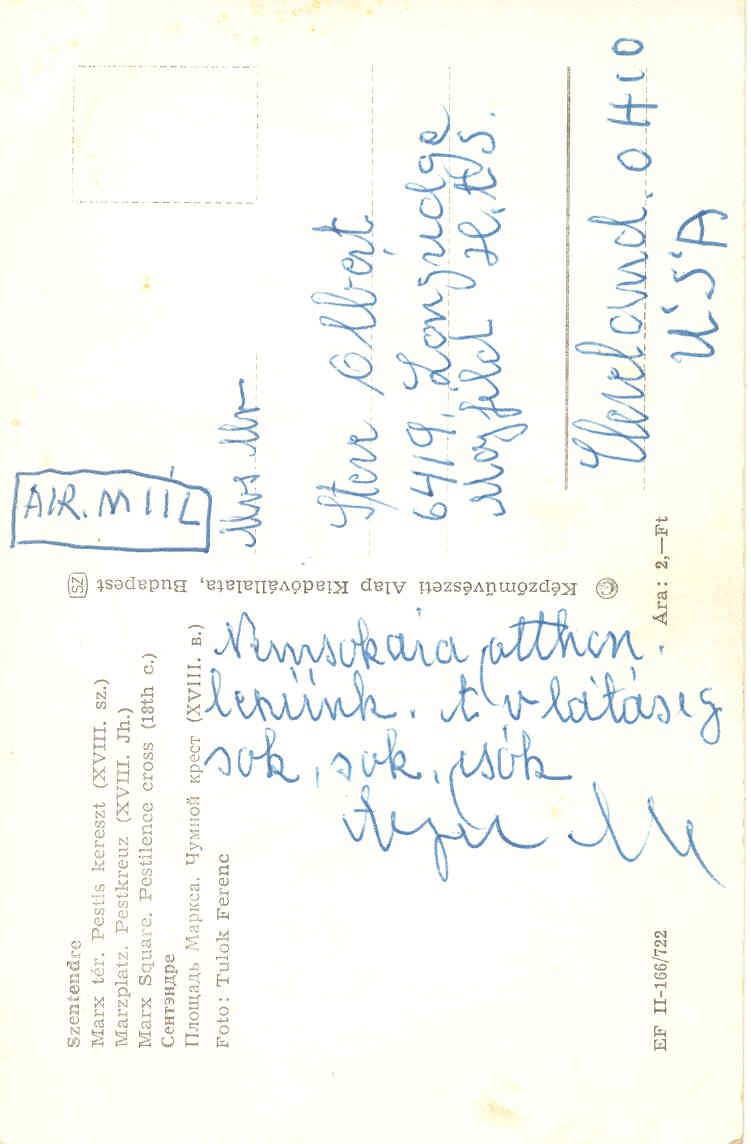 Szentendre
Marx tér. Pestis kereszt (XVIII. sz.)
Marxplatz. Pestkreuz (XVIII. Jh.)
Marx Square. Pestilence cross (18th c.)
Сентэндре
Площадь Маркса. Чумной крест (XVIII. в.)
Foto: Tulok Ferenc
Nemsokára otthon.
leszünk. A v látásig
sok, sok, csók
EF II-166/722
Ára: 2,—Ft
© Képzőművészeti Alap Kiadóvállalata, Budapest SZ
AIR. MIIL
Mrs Mr
Steve Albert
6419, Longridge
Mayfield H.ts.
Cleveland. OHIO
USA